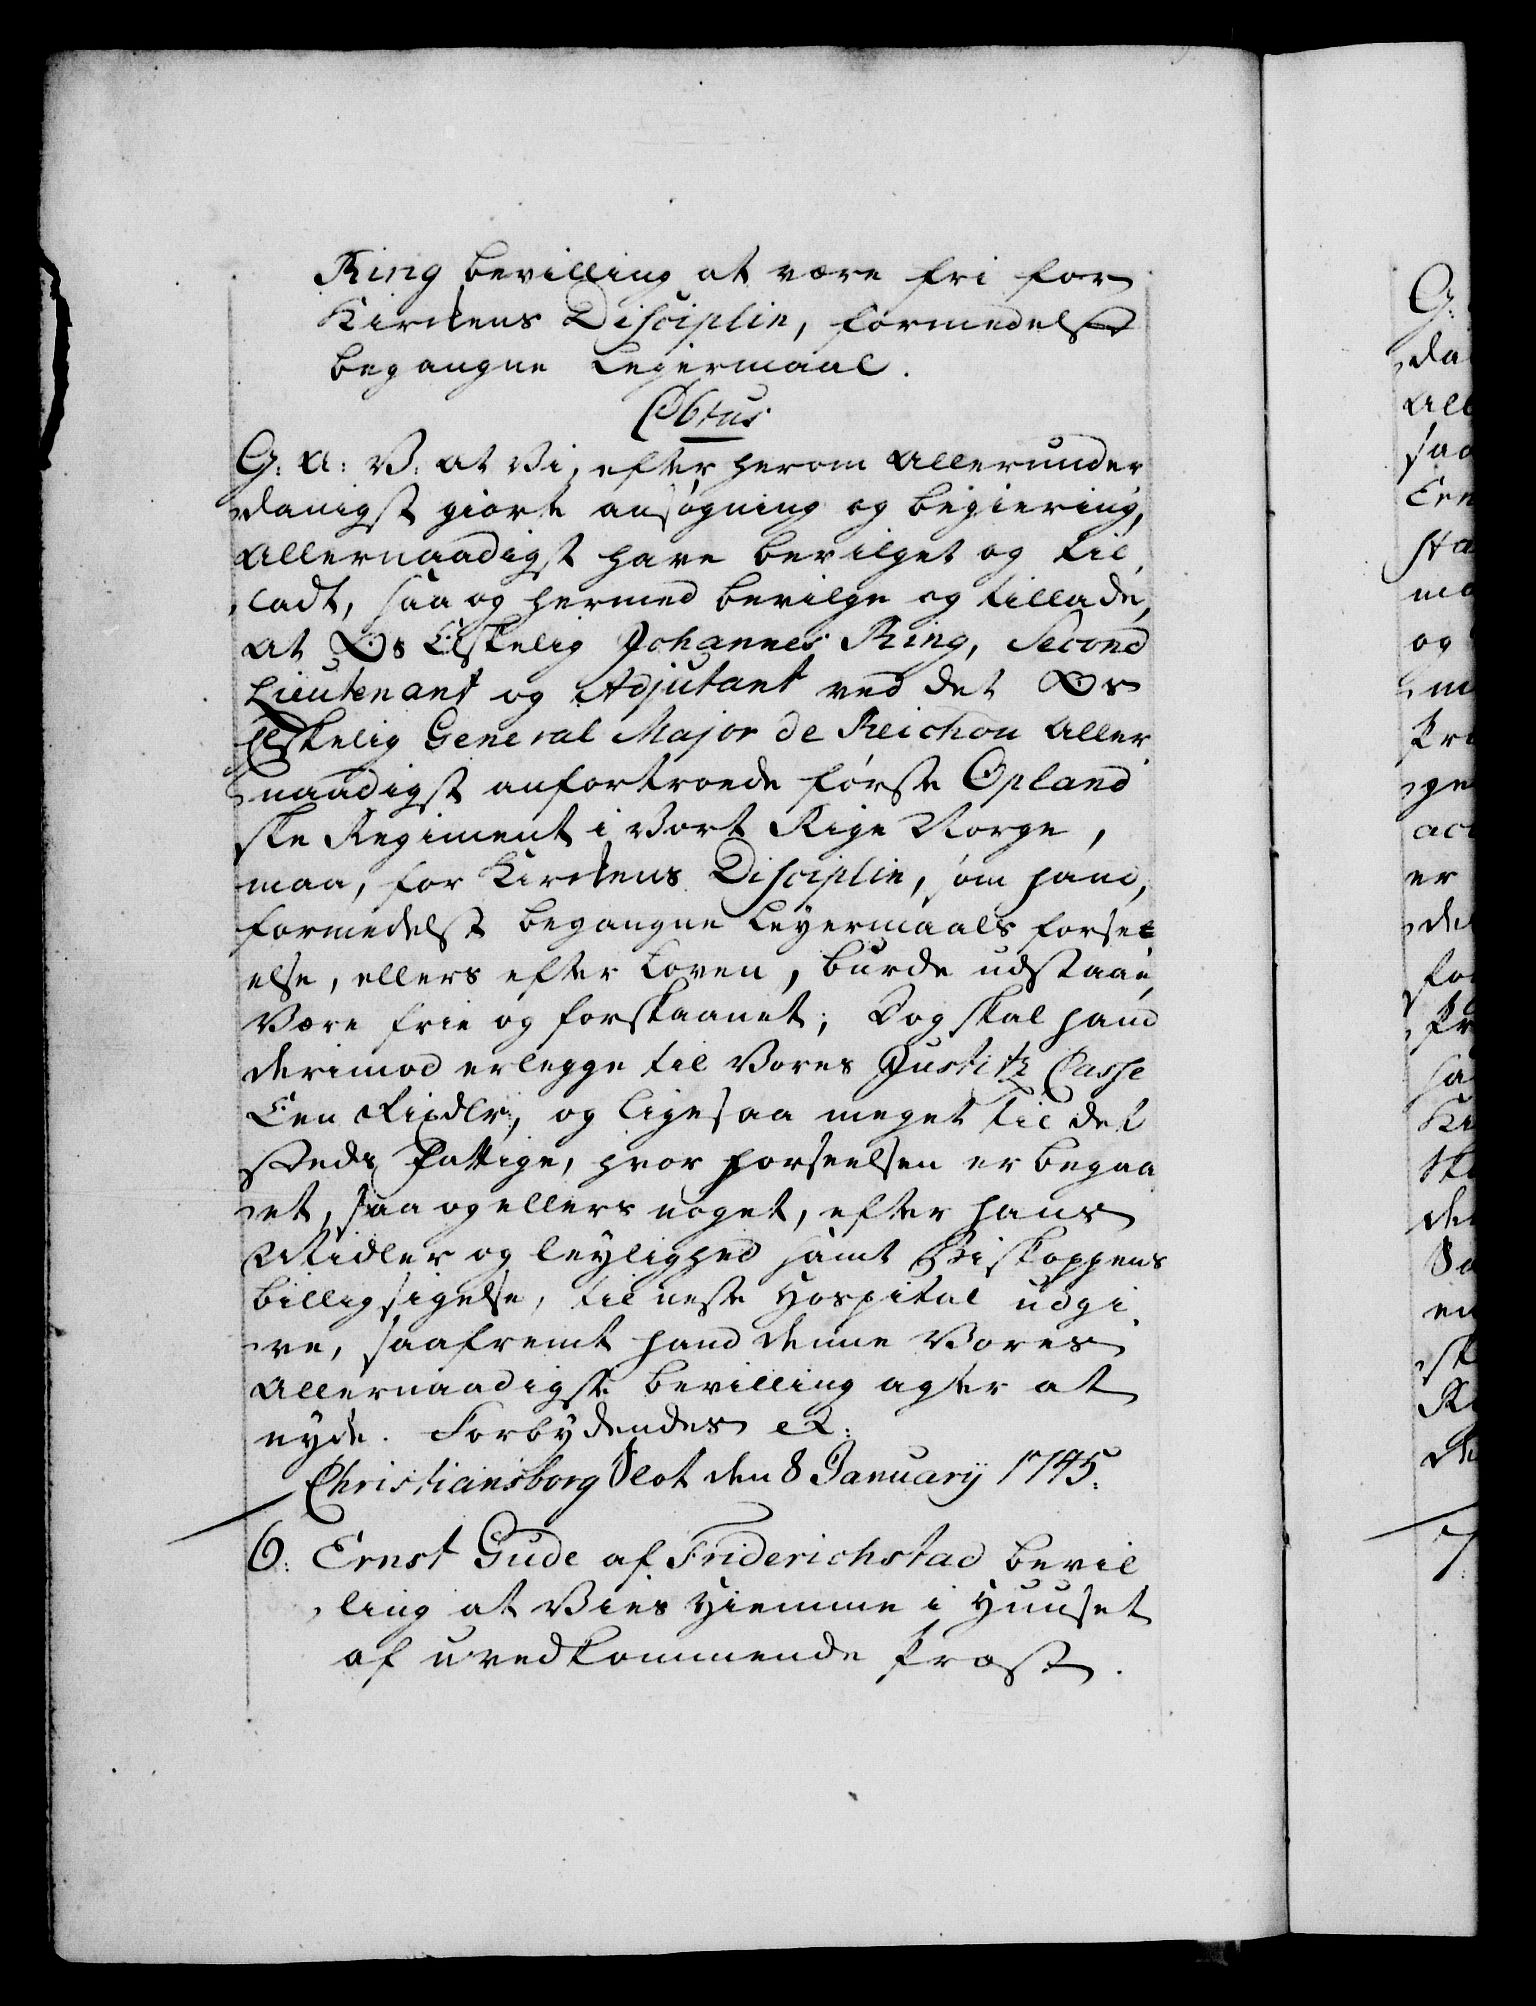 Ring bevilling at være fri for
Kirckens Disciplin, formedelst
begangne Lejermaal.
C6tus
G: A: V: at Vi, efter herom allerunder
danigst giorte ansøgning og begiering,
allernaadigst have bevilget og til
ladt, saa og hermed bevilge og tillade,
at Os Elskelig Johannes Ring, Second
Lieutenant og Adjutant ved det Os
Elskelig General Major de Reichou aller
naadigst anfortroede første Opland
ske Regiment i Vort Rige Norge,
maa, for Kirckens Disciplin, som hand,
formedelst begangne Leyermaals forse
else, ellers efter Loven, burde udstaae,
Være frie og forskaanet; Dog skal hand
derimod erlegge til Vores Justitz Casse
Een Rixdlr:, og ligesaa meget til det
steds Fattige, hvor forseelsen er begaa
et, saa og ellers noget, efter hans
Midler og leylighed samt Biskoppens
billigsigelse, til neste Hospital udgi
ve, saafremt hand denne Vores
allernaadigste bevilling agter at
nyde. Forbydendes &:
Christiansborg Slot den 8 Januarij 1745.
6: Ernst Gude af Friderichstad bevil
ling at Vies Hiemme i Huuset
af uvedkommende Præst.
G:
da
all
saa
Ern
sta
ma
og
m
Pr
ge
act
er
de
for
Pr
ha
Ki
ske
de
Sa
en
sk
Ri
de
7: